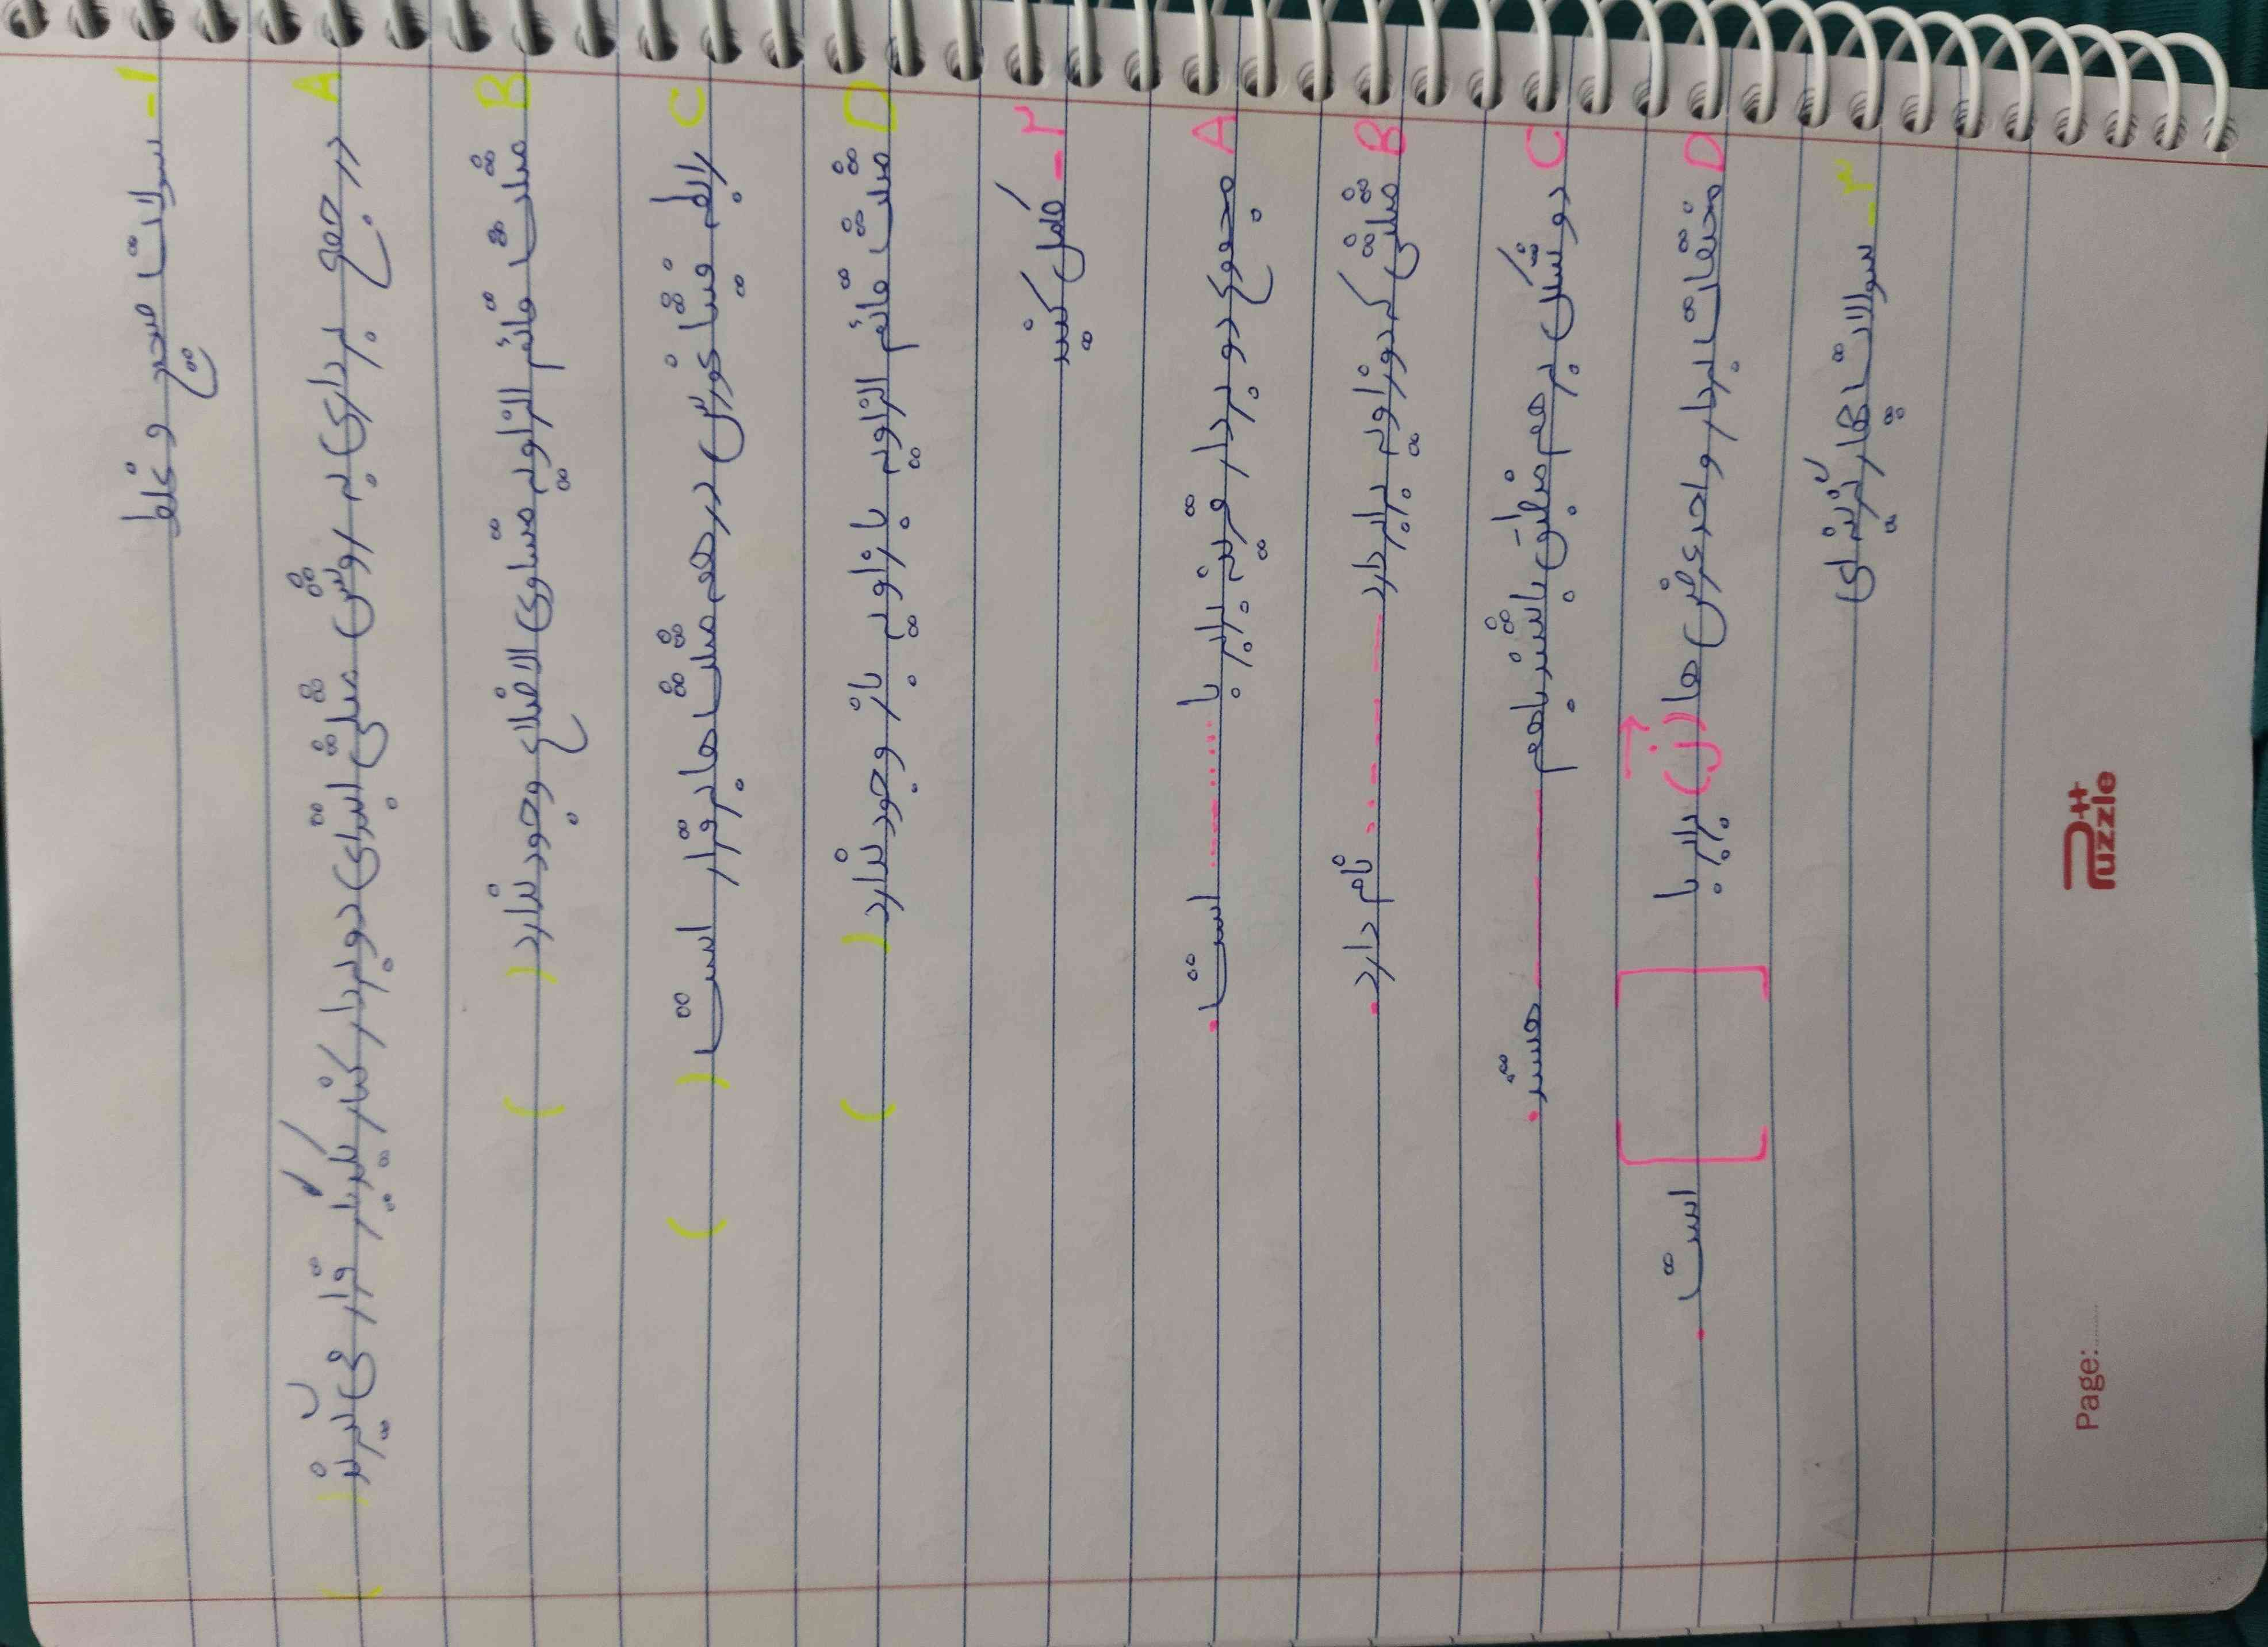 ۱- سولات صحیح و غلط
A در جمع برداری به روش مثلثی ابتدای دو بردار کنار یکدیگر قرار می گیرند ( )
B مثلث قائم الزاویه متساوی الاضلاع وجود ندارد ( )
C رابطه فیثاغورس در همه مثلث ها برقرار است ( )
D مثلث قائم الزاویه با زاویه باز وجود ندارد ( )
۲- کامل کنید
A مجموع دو بردار قرینه برابر با ........ است.
B مثلثی که دو زاویه برابر دارد ........ نام دارد.
C دو شکل بر هم منطبق باشند باهم ........ هستند.
D مختصات بردار واحد عرض ها (j) برابر با [ ] است.
۳- سوالات چهار گزینه ای
Puzzle
Page:........